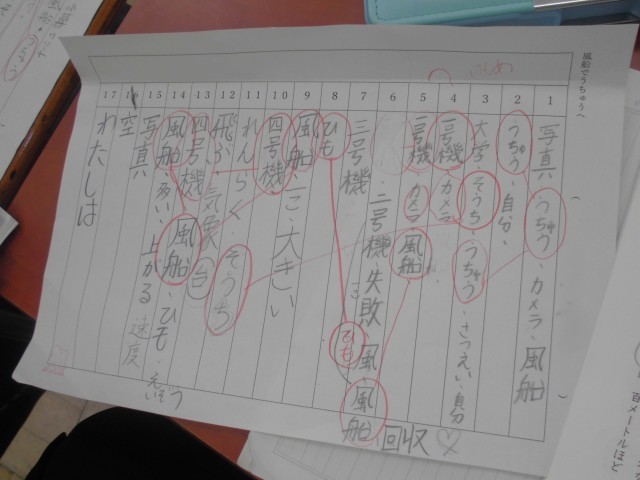 風船でうちゅうへ
1 写真、うちゅう、カメラ、風船
2 うちゅう、自分、
3 大学、そうち、うちゅう、さつえい、自分
4 一号機、カメラ
5 二号機、カメラ、風船
6 二号機、失敗、風、風船
7 三号機
8 ひも、ひも、回収
9 風船、一こ、大きい
10 四号機
11 れんらく、そうち
12 飛ぶ、気象台
13 四号機
14 風船、風船、ひも、えいぞう
15 写真、多い、上がる、速度
空
17 わたしは
百メートルほど